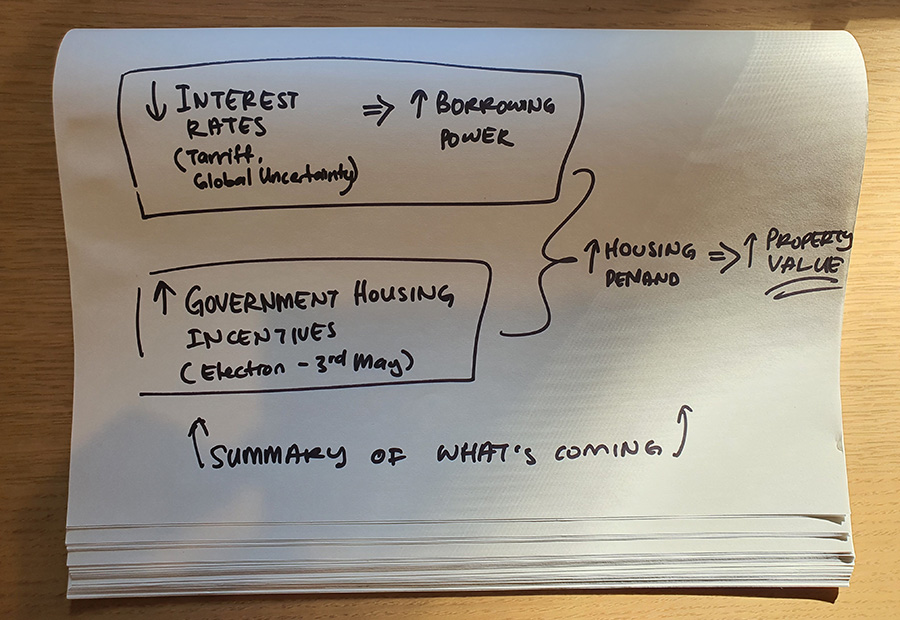 ↓ INTEREST
RATES
(Tarriff,
Global Uncertainty)
⇒ ↑ BORROWING
POWER
↑ GOVERNMENT HOUSING
INCENTIVES
(Election - 3rd May)
↑ HOUSING
DEMAND
⇒ ↑ PROPERTY
VALUE
↑ SUMMARY OF WHAT'S COMING ↑